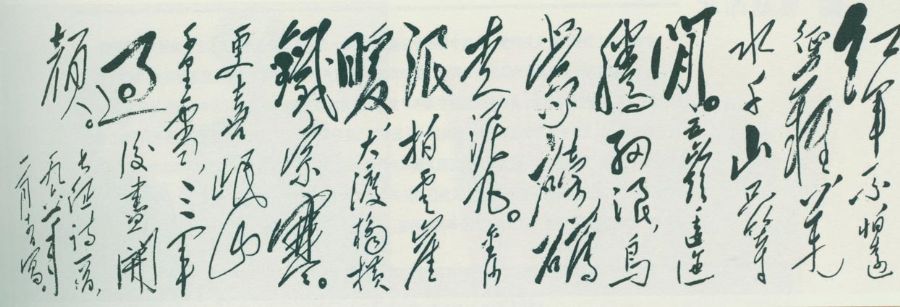 红军不怕远
征难万
水千山只等
闲。五岭逶迤
腾细浪,乌
蒙磅礴
走泥丸。金沙
浪拍云崖
暖,大渡桥横
铁索寒。
更喜岷山
千里雪,三军
过后尽开
颜。
长征诗一首
一九六二年